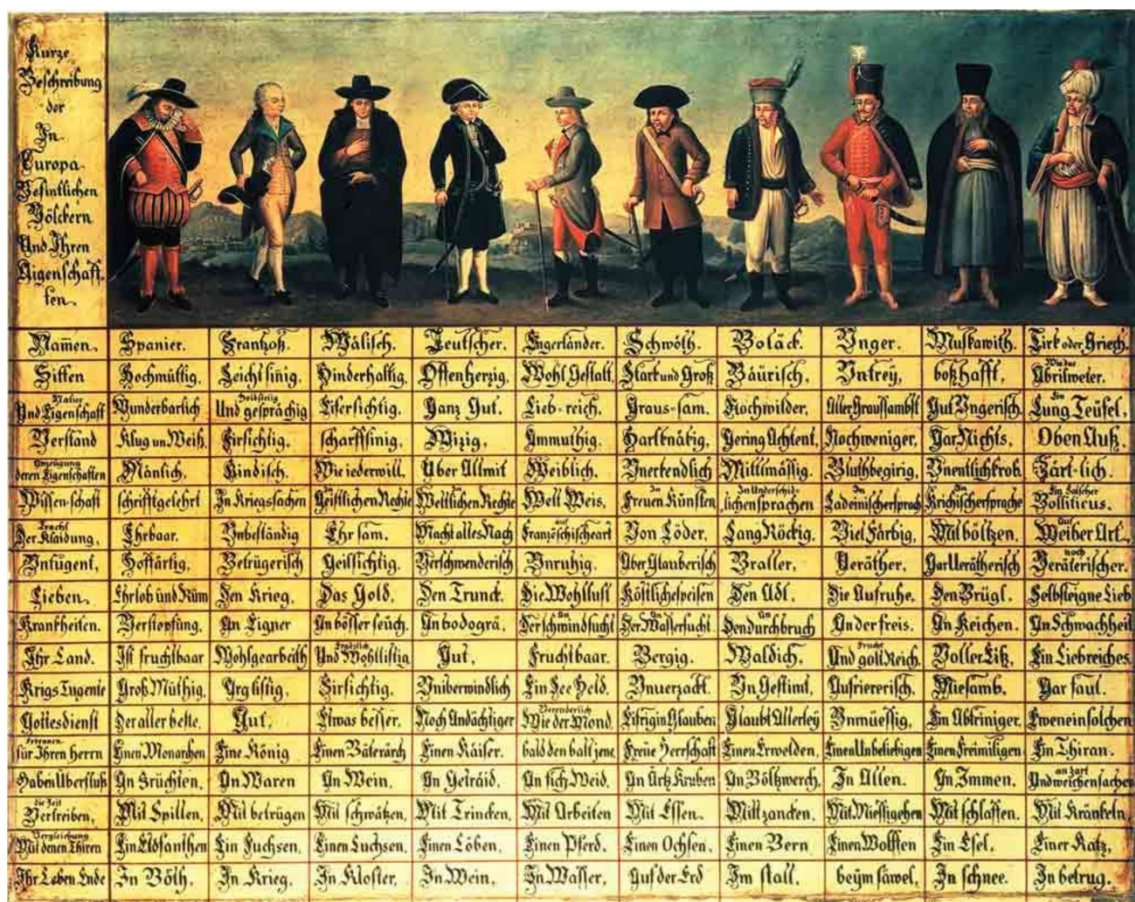 Kurze
Beschreibung
der
In
Europa
Befintlichen
Völckern
Und Ihren
Aigenschaff-
ten.
Namen. Spanier. Frantzoß. Wälisch. Teutscher. Engerländer. Schwöth. Boläck. Unger. Muskawith. Tirk oder Griech.
Sitten Hochmüttig, Leicht sinig, Hinderhaltig, Offenherzig, Wohl Gestalt, Stark und Groß Bäurisch, Untrey, boßhafft, Wie das Abrilweter.
Natur Und Eigenschaft Wunderbarlich Holdseelig Und gesprächig Eifersichtig, Ganz Gut, Lieb-reich, Graus-sam, Nochwilder, Aller Graussambst Gut Ungerisch, Ein Lung Teüfel,
Verstand Klug un Weiß, Firsichtig, scharffsinig, Wizig, Ammuthig, Hartknäkig, Gering Achtent, Nochweniger, Gar Nichts, Oben Auß,
Anzeigung deren Eigenschaften Mänlich, Kindisch, Wie iederwill, Über Allmit Weiblich, Unerkendlich Mittlmässig, Bluthbegirig, Unentlichkrob, Zärt-lich,
Wissen-schaft schrifftgelehrt In Kriegssachen In Geistlichen Rechte In Weltlichen Rechte Welt Weis, In Freuen Künsten, In Underschid-lichen sprachen In Ladeinischersprach In Krichischersprache Im Falscher Bolliticus.
Tracht Der Klaidung, Ehrbaar. Unbeständig Ehrsam. Macht alles Nach auf Französchischeart Von Löder, Lang Röckig, Viel Färbig, Mit böltzen, Auf Weiber Art,
Untugent, Hoffärtig, Betrügerisch Geilsichtig, Verschwenderisch Unruhig, Aber Glauberisch Braller, Veräther, Gar Verrätherisch noch Verätterischer.
Lieben, Ehrlob und Rüm Den Krieg, Das Gold, Den Trunck, Die Wohllust Köstlichespeisen Den Adl, Die Aufruhe, Den Brügl, Selbsteigne Lieb
Krankheiten. Verstopfung, An Eigner An bösser seüch, An bodogrä, An Der schwindsucht An Der Wassersucht An Den durchbruch An der freis, An Keichen, An Schwachheit
Ihr Land. Ist fruchtbaar Wohlgearbeith Ergözlich Und Wohllistig Gut, Fruchtbaar. Bergig. Waldich, Frucht Und golt Reich, Voller Eiß, Ein Liebreiches
Krigs Tugente Groß Müthig, Arg listig, Firsichtig, Uniberwindlich Ein See Held, Unverzackt, Un Gestimt, Aufriererisch, Miesamb, Gar faul.
Gottesdienst Der aller beste, Gut, Etwas besser, Noch Andächtiger Verenderlich Wie der Mond Eifrig in Glauben Glaubt Allerley Unmüessig, Ein Abtriniger, Eweneinsolchen
Erkennen für Ihren herrn Einen Monarchen Eine König Einen Bäterärch Einen Käiser, bald den balt jene, Freüe Herrschaft Einen Erwelden, Einen Unbeliebigen Einen Freimiligen Ein Thiran.
Haben Uberfluß An Früchten, An Waren An Wein, An Geträid, An fich Weid, An Ärtz Kruben An Böltzwerch, In Allen, An Immen, an zart Und weichen sachen
die Zeit Vertreiben, Mit Spillen, Mit betrügen Mit schwätzen, Mit Trincken, Mit Arbeiten Mit Essen, Mitt zancken, Mit Miessigehen Mit schlaffen, Mit Kränkeln
Vergleichung Mit denen Thiren Ein Elofanthen Ein Fuchsen, Einen Luchsen, Einen Löben, Einen Pferd, Einen Ochsen, Einen Bern Einen Wolffen Ein Esel, Einer Katz,
Ihr Leben Ende In Böth. In Krieg. In Kloster, In Wein, In Wasser, Auf der Erd Im stall, beÿm säwel, In schnee. In betrug.